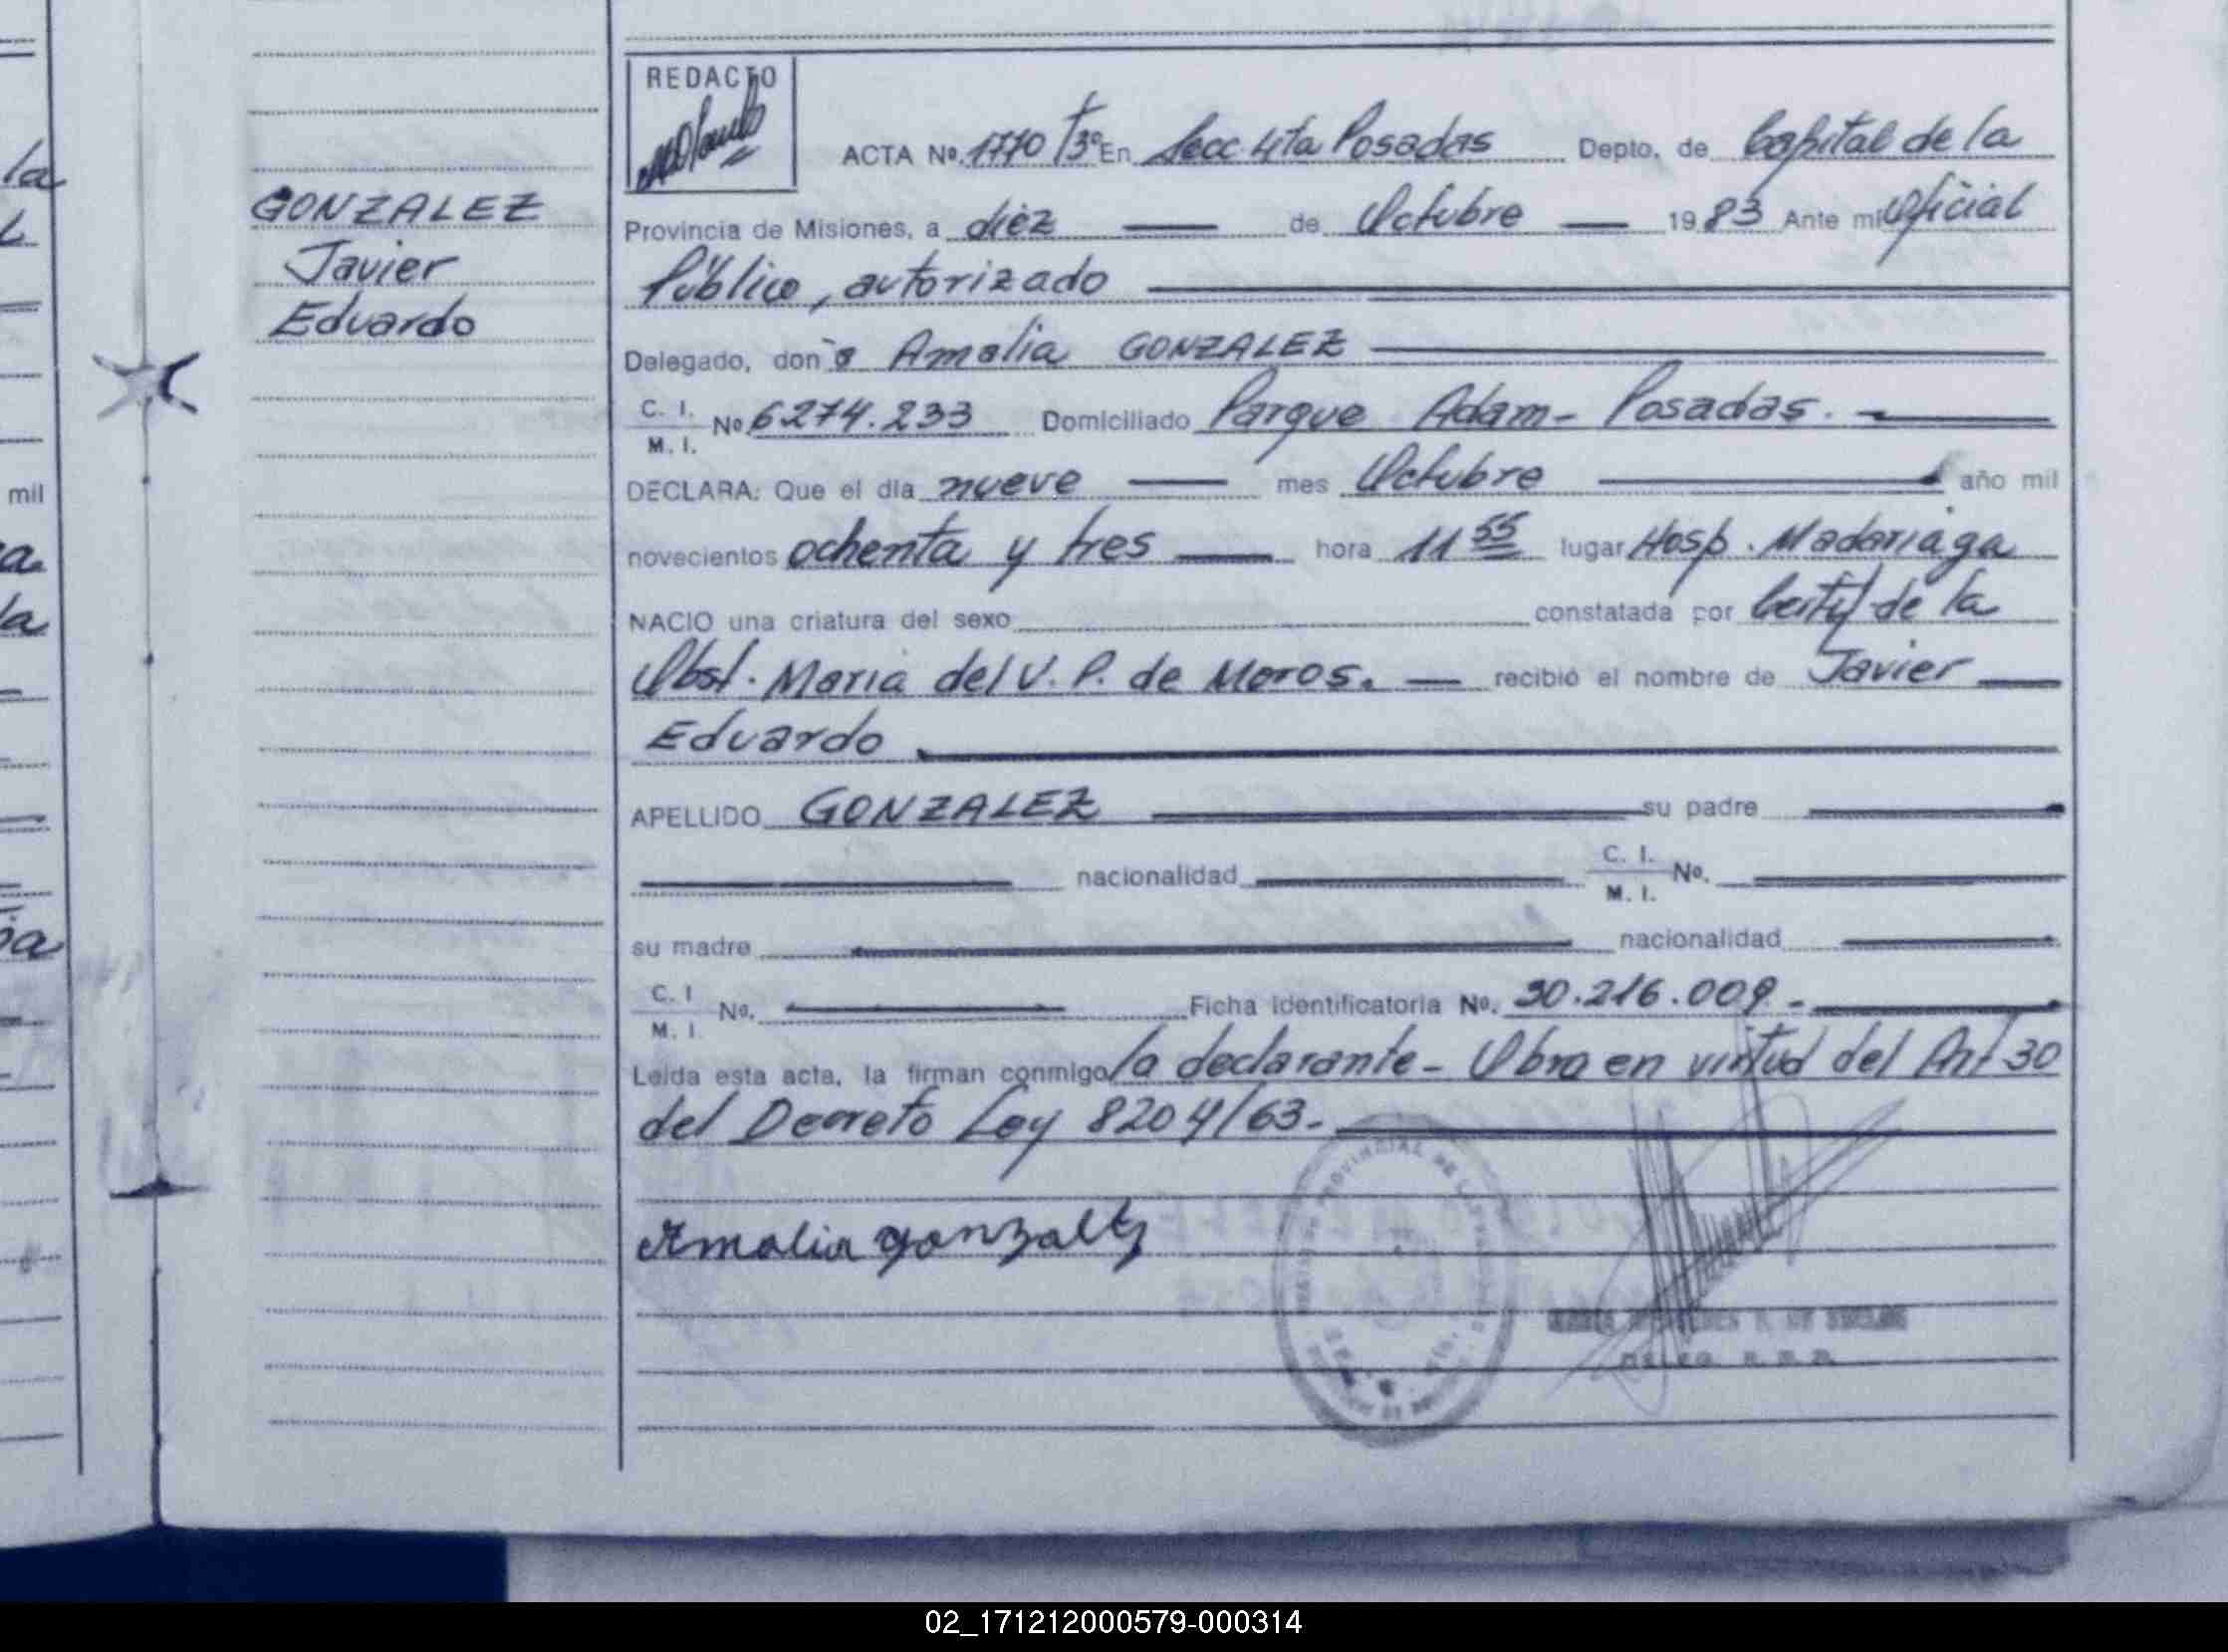 la
mil
a
la
GONZALEZ
Javier
Eduardo
REDACTO
ACTA Nº. 1770 Tº3º En Secc 4ta Posadas Depto. de Capital de la
Provincia de Misiones, a diez de Octubre 19 83 Ante mi Oficial
Público, autorizado
Delegado, don a Amalia GONZALEZ
C. I. M. I. Nº 6274.233 Domiciliado Parque Adam - Posadas.
DECLARA: Que el día nueve mes Octubre año mil
novecientos ochenta y tres hora 11 55 lugar Hosp. Madariaga
NACIO una criatura del sexo constatada por Certif de la
Obst. Maria del V. P. de Meros. recibió el nombre de Javier
Eduardo
APELLIDO GONZALEZ su padre
nacionalidad C. I. M. I. Nº.
su madre nacionalidad
C. I M. I. Nº. Ficha identificatoria Nº. 30.216.009.-
Leída esta acta, la firman conmigo la declarante - Obra en virtud del Art 30
del Decreto Ley 8204/63.-
Amalia gonzalez
02_171212000579-000314